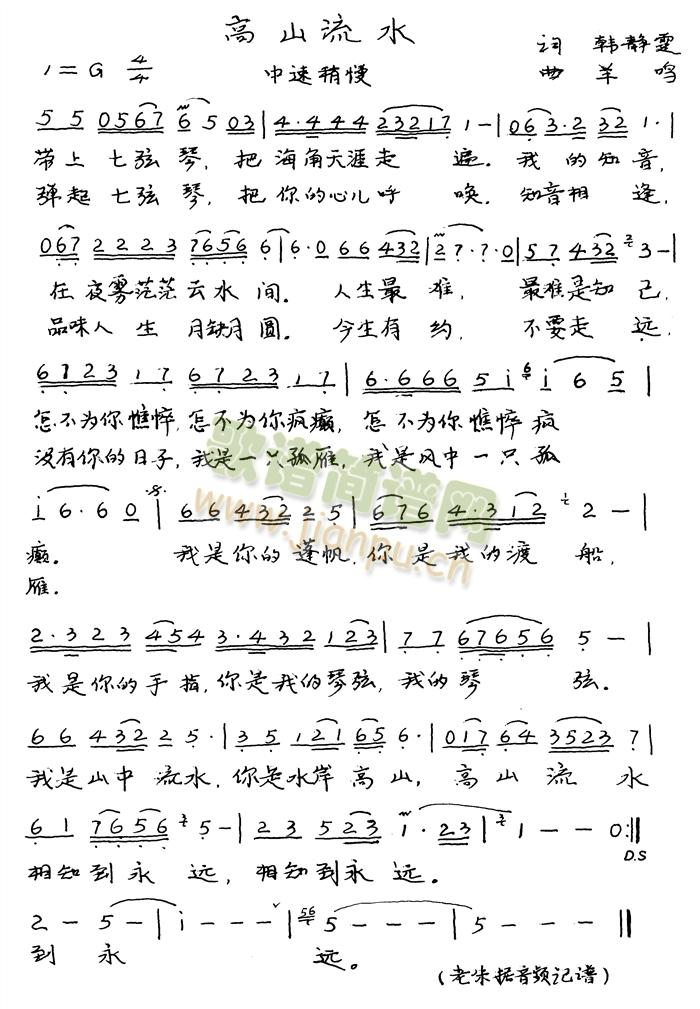 高山流水
1=G 4/4 中速稍慢 词 韩静霆
曲 羊鸣
5 5 0567 6 5 03 | 4·4 4 4 23217 1 - | 06 3·2 32 1· |
带上七弦琴,把海角天涯走遍。我的知音,
弹起七弦琴,把你的心儿呼唤。知音相逢,
067 2223 7656 6 | 6·0 66 432 | 2 7·7·0 | 57 432 3 - |
在夜雾茫茫云水间。人生最难,最难是知己,
品味人生月缺月圆。今生有约,不要走远,
6723 17 6723 17 | 6·666 5 i i 6 5 |
怎不为你憔悴,怎不为你疯癫,怎不为你憔悴疯
没有你的日子,我是一只孤雁,我是风中一只孤
i 6·6 0 | 66 432 2 5 | 676 4·312 2 - |
癫。我是你的蓬帆,你是我的渡船,
雁。
2·323 454 3·432 123 | 77 67656 5 - |
我是你的手指,你是我的琴弦,我的琴弦。
66 432 2 5· | 35 121 65 6· | 017 64 3523 7 |
我是山中流水,你是水岸高山,高山流水
61 7656 5 - | 23 523 1·23 | 1 - - 0 :||
D.S
相知到永远,相知到永远。
2 - 5 - | i - - - | 56 5 - - - | 5 - - - ||
到永远。
(老朱据音频记谱)
歌谱简谱网
www.jianpu.cn